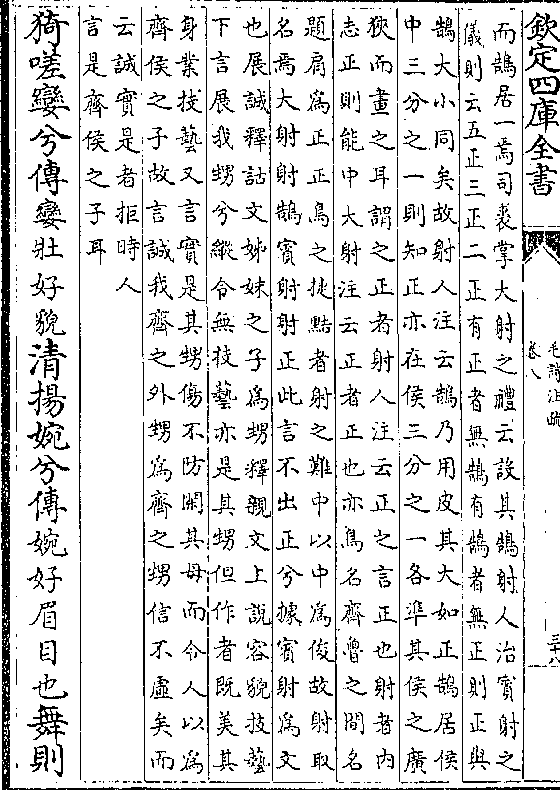 欽定四庫全書
毛詩注疏
卷八
三十八
而鵠居一焉司裘掌大射之禮云設其鵠射人治賓射之
儀則云五正三正二正有正者無鵠有鵠者無正則正與
鵠大小同矣故射人注云鵠乃用皮其大如正鵠居侯
中三分之一則知正亦在侯三分之一各準其侯之廣
狹而畫之耳謂之正者射人注云正之言正也射者内
志正則能中大射注云正者正也亦鳥名齊魯之間名
題肩為正正鳥之捷黠者射之難中以中為俊故射取
名焉大射射鵠賓射射正此言不出正兮據賓射為文
也展誠釋詁文姊妹之子為甥釋親文上說容貌技藝
下言展我甥兮縱令無技藝亦是其甥但作者既美其
身業技藝又言實是其甥傷不防閑其母而令人以為
齊侯之子故言誠我齊之外甥為齊之甥信不虛矣而
云誠實是者拒時人
言是齊侯之子耳
猗嗟孌兮傳孌壯好貌清揚婉兮傳婉好眉目也舞則